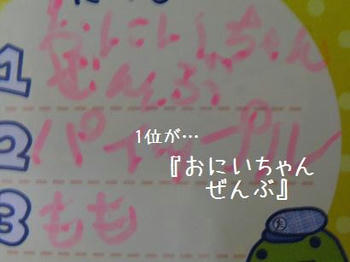 1
おにいちゃん
ぜんぶ
2
パイナップル
3
もも
1位が…
『おにいちゃん
ぜんぶ』